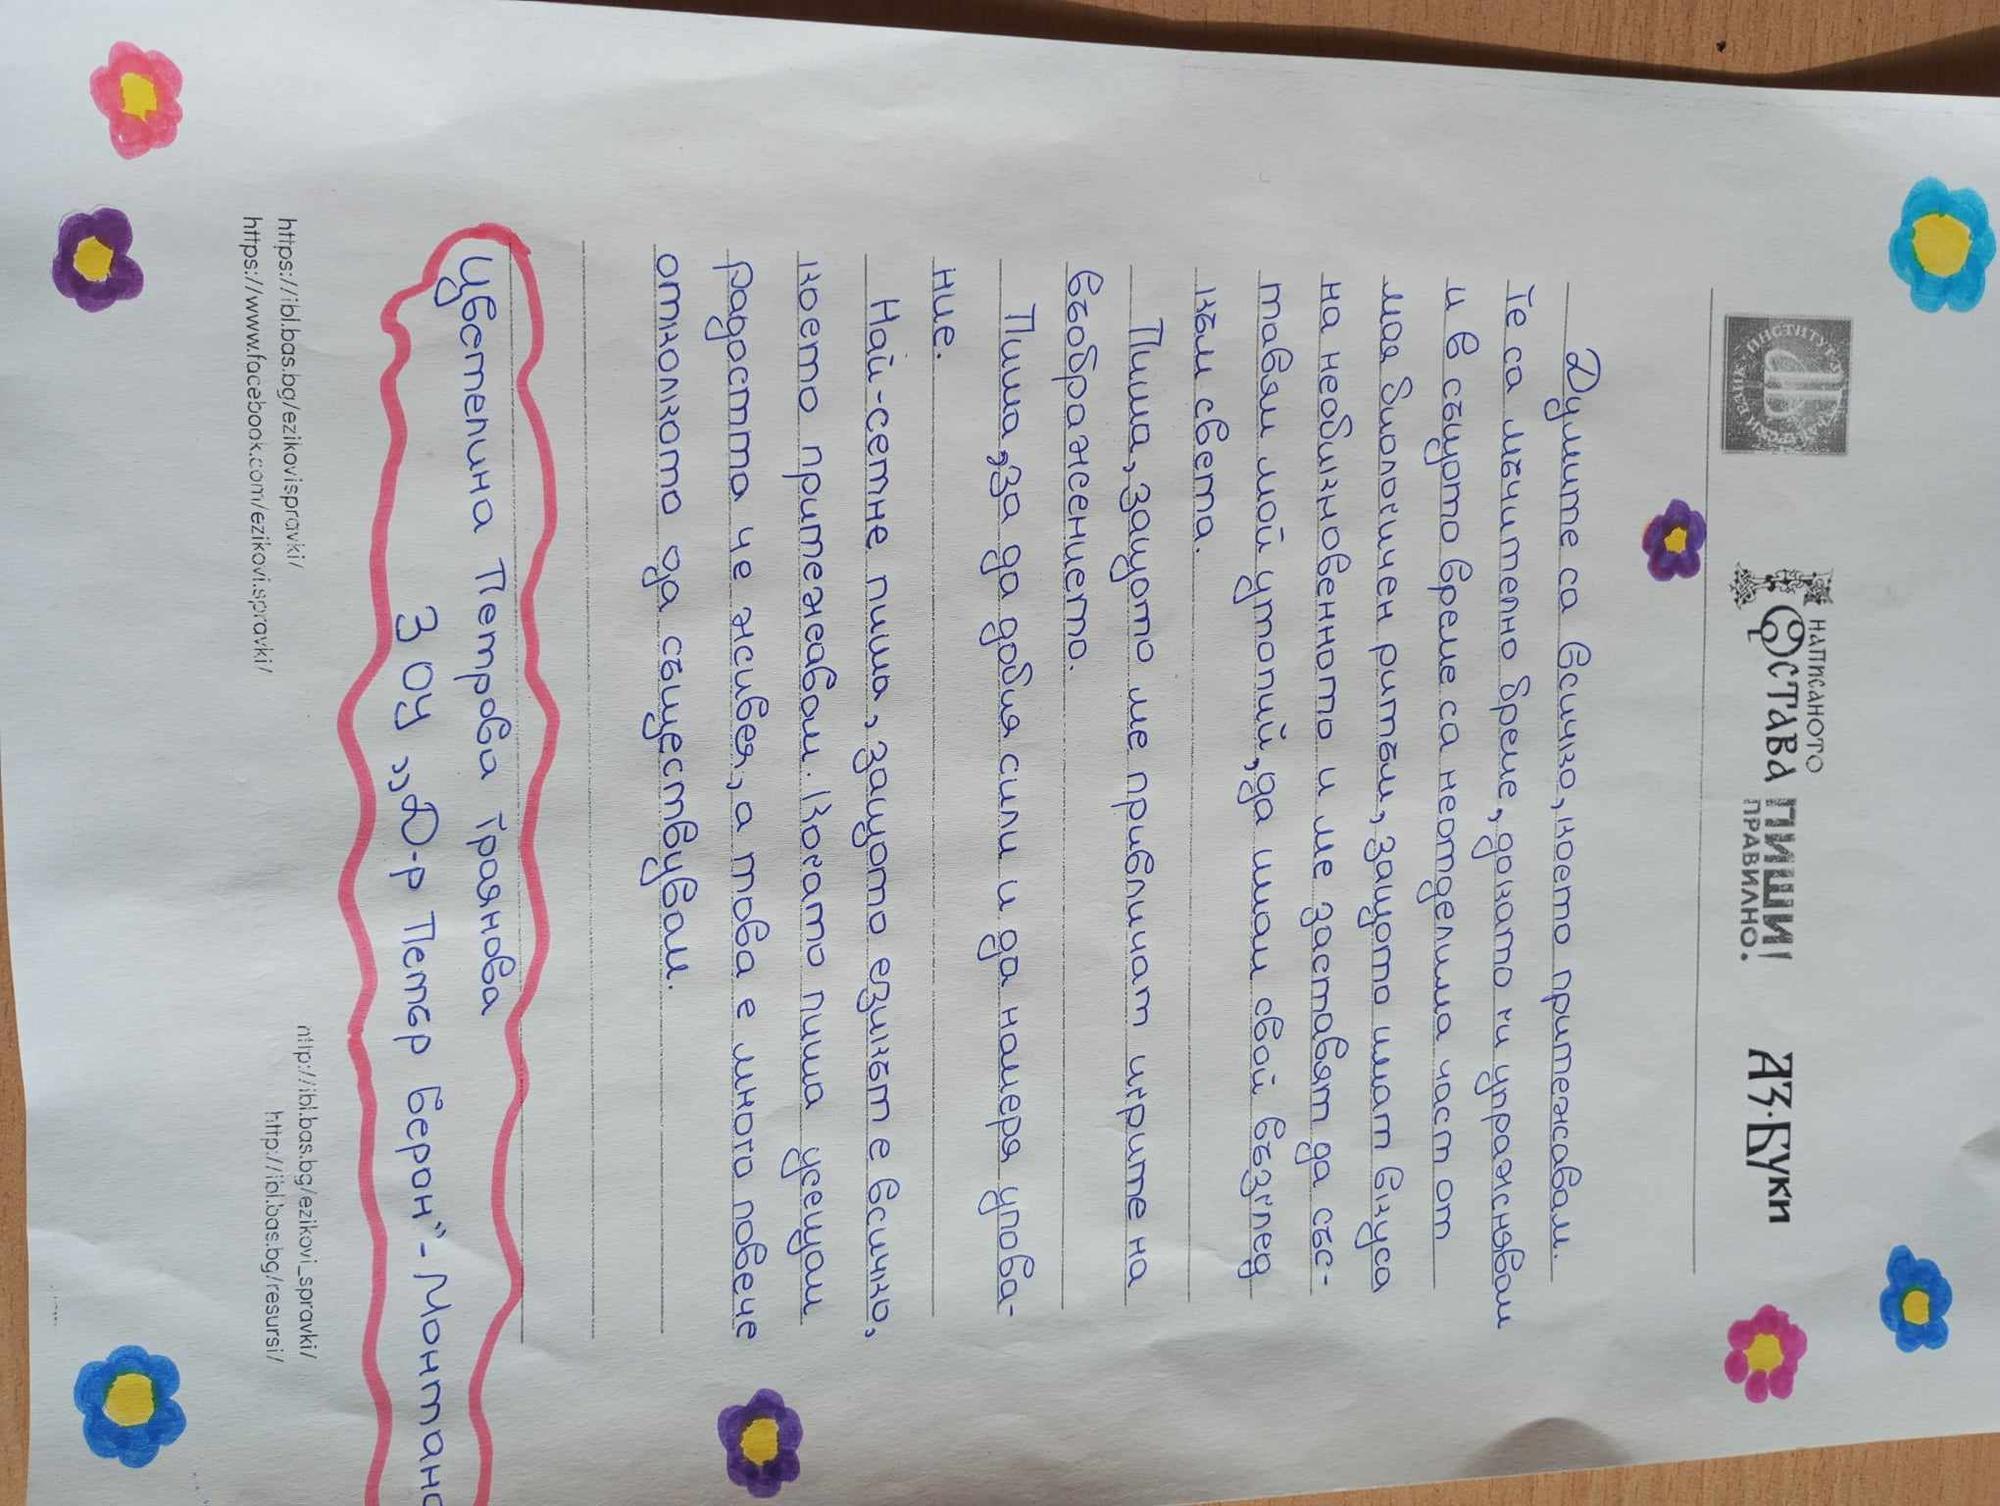 НАПИСАНОТО
ОСТАВА ПИШИ!
ПРАВИЛНО.
АЗ·БУКИ
Думите са всичко, което притежавам.
Те са мъчително бреме, докато ги упражнявам
и в същото време са неотделима част от
моя биологичен ритъм, защото имат вкуса
на необикновенното и ме заставят да със-
тавям мой утопий, да имам свой възглед
към света.
Пиша, защото ме привличат игрите на
въображението.
Пиша, за да добия сили и да намеря упова-
ние.
Най-сетне пиша, защото езикът е всичко,
което притежавам. Когато пиша усещам
радостта че живея, а това е много повече
отколкото да съществувам.
Цветелина Петрова Траянова
3 ОУ „Д-р Петър Берон" - Монтана
https://ibl.bas.bg/ezikovispravki/
https://www.facebook.com/ezikovi.spravki/
http://ibl.bas.bg/ezikovi_spravki/
http://ibl.bas.bg/resursi/